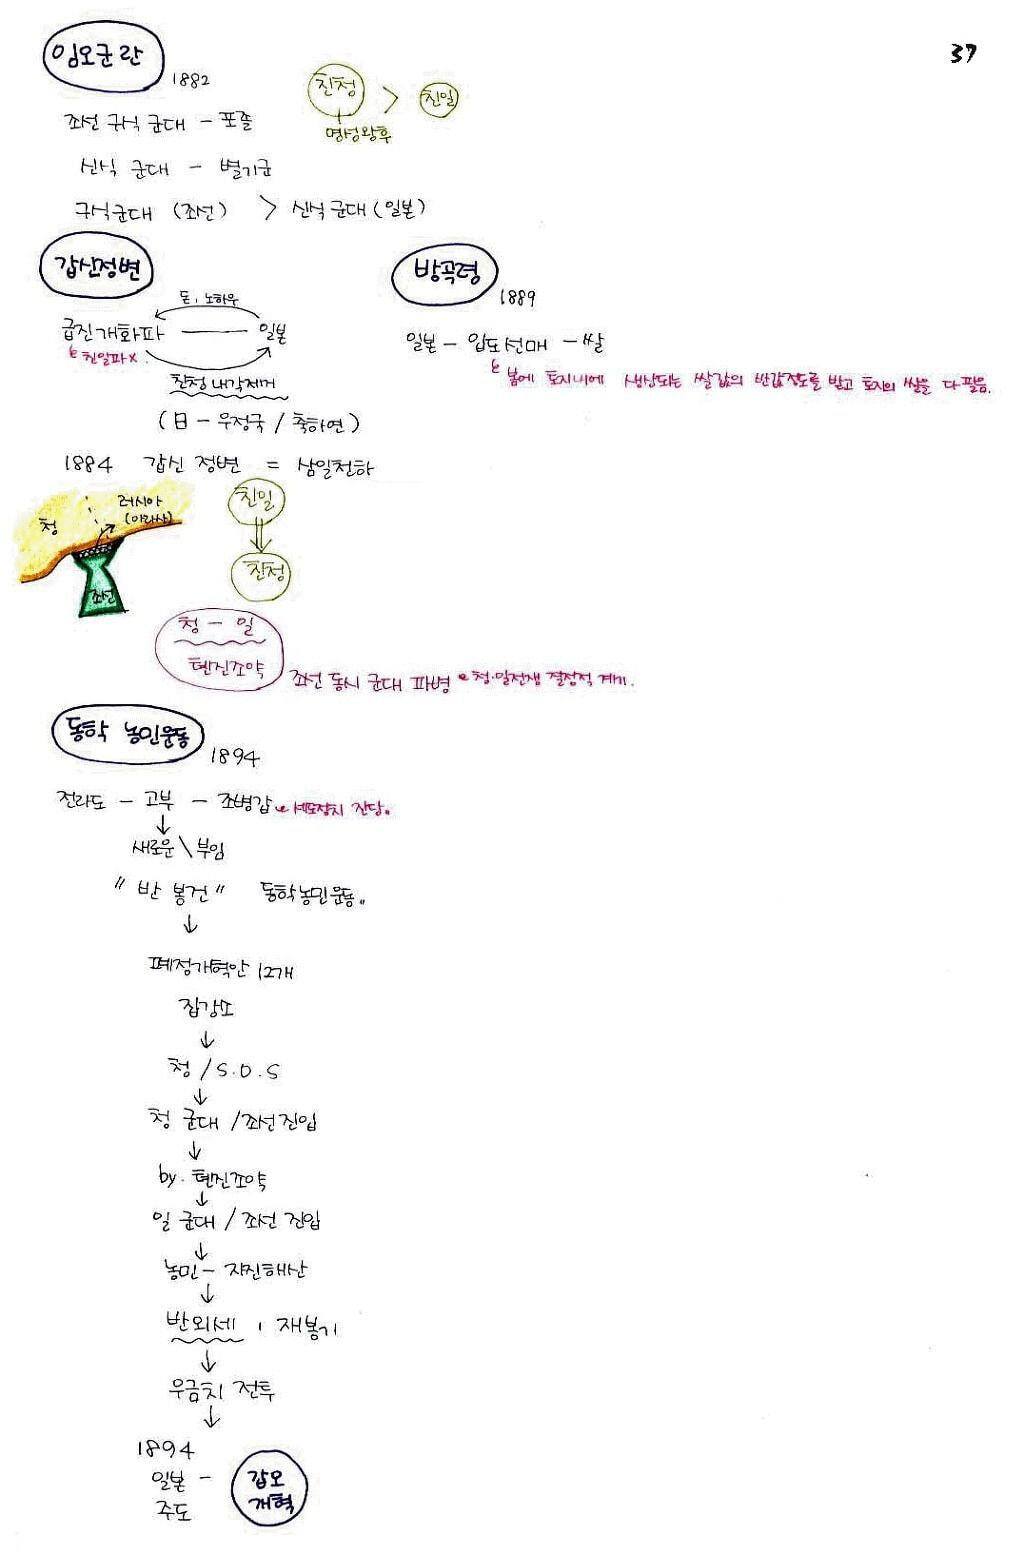 37
임오군란
1882
친청 > 친일
명성왕후
조선 구식 군대 - 포졸
신식 군대 - 별기군
구식군대 (조선) > 신식군대 (일본)
갑신정변
돈, 노하우
급진개화파 일본
친일파 X.
친청 내각제거
(日 - 우정국 / 축하연)
1884 갑신 정변 = 삼일천하
방곡령
1889
일본 - 입도선매 - 쌀
봄에 토지내에 생산되는 쌀값의 반값정도를 받고 토지의 쌀을 다 팔음.
청
러시아
(아라사)
조선
친일
친청
청 - 일
톈진조약
조선 동시 군대 파병 청·일전쟁 결정적 계기.
동학 농민운동
1894
전라도 - 고부 - 조병갑
새로운 \ 부임
"반 봉건" 동학농민운동.
폐정개혁안 12개
집강소
청 / S.O.S
청 군대 / 조선진입
by. 톈진조약
일 군대 / 조선 진입
농민 - 자진해산
반외세, 재봉기
우금치 전투
1894
일본 -
주도
갑오
개혁